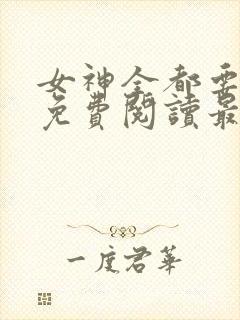 女神全都要
免費閱讀最
一度君華